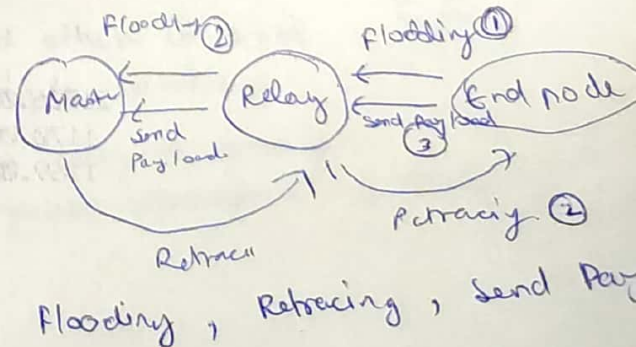 Flooding ② Flodding ①
Master Relay End node
send Payload Send Payload ③
Retracing ②
Retrace
Flooding , Retracing , Send Pay